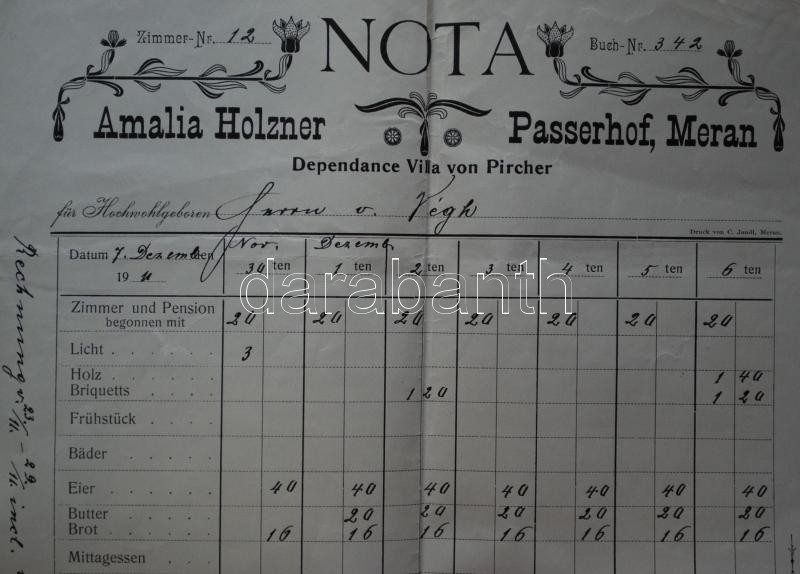 Zimmer-Nr. 12
NOTA
Buch-Nr. 342
Amalia Holzner
Passerhof, Meran
Dependance Villa von Pircher
für Hochwohlgeboren Herrn v. Végh
Druck von C. Jandl, Meran.
Nov. Dezemb.
Datum 7. Dezember
19 11 30 ten 1 ten 2 ten 3 ten 4 ten 5 ten 6 ten
darabanth
Zimmer und Pension
begonnen mit 20 20 20 20 20 20 20
Licht 3
Holz 1 40
Briquetts 1 20 1 20
Frühstück
Bäder
Eier 40 40 40 40 40 40 40
Butter 20 20 20 20 20 20
Brot 16 16 16 16 16 16 16
Mittagessen
Rechnung v. 23/11. – 29/11. incl.